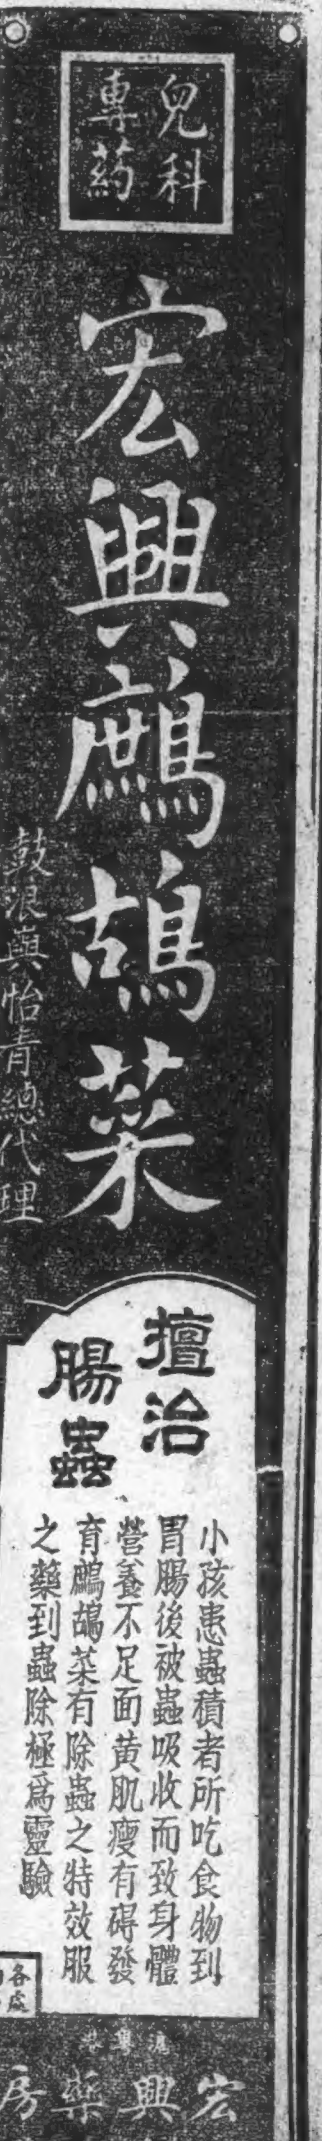 兒科
專药
宏興鷓鴣菜
鼓浪嶼怡青總代理
擅治
腸蟲
小孩患蟲積者所吃食物到
胃腸後被蟲吸收而致身體
營養不足面黄肌瘦有碍發
育鷓鴣菜有除蟲之特效服
之藥到蟲除極爲靈驗
各處
滬粵港
宏興藥房